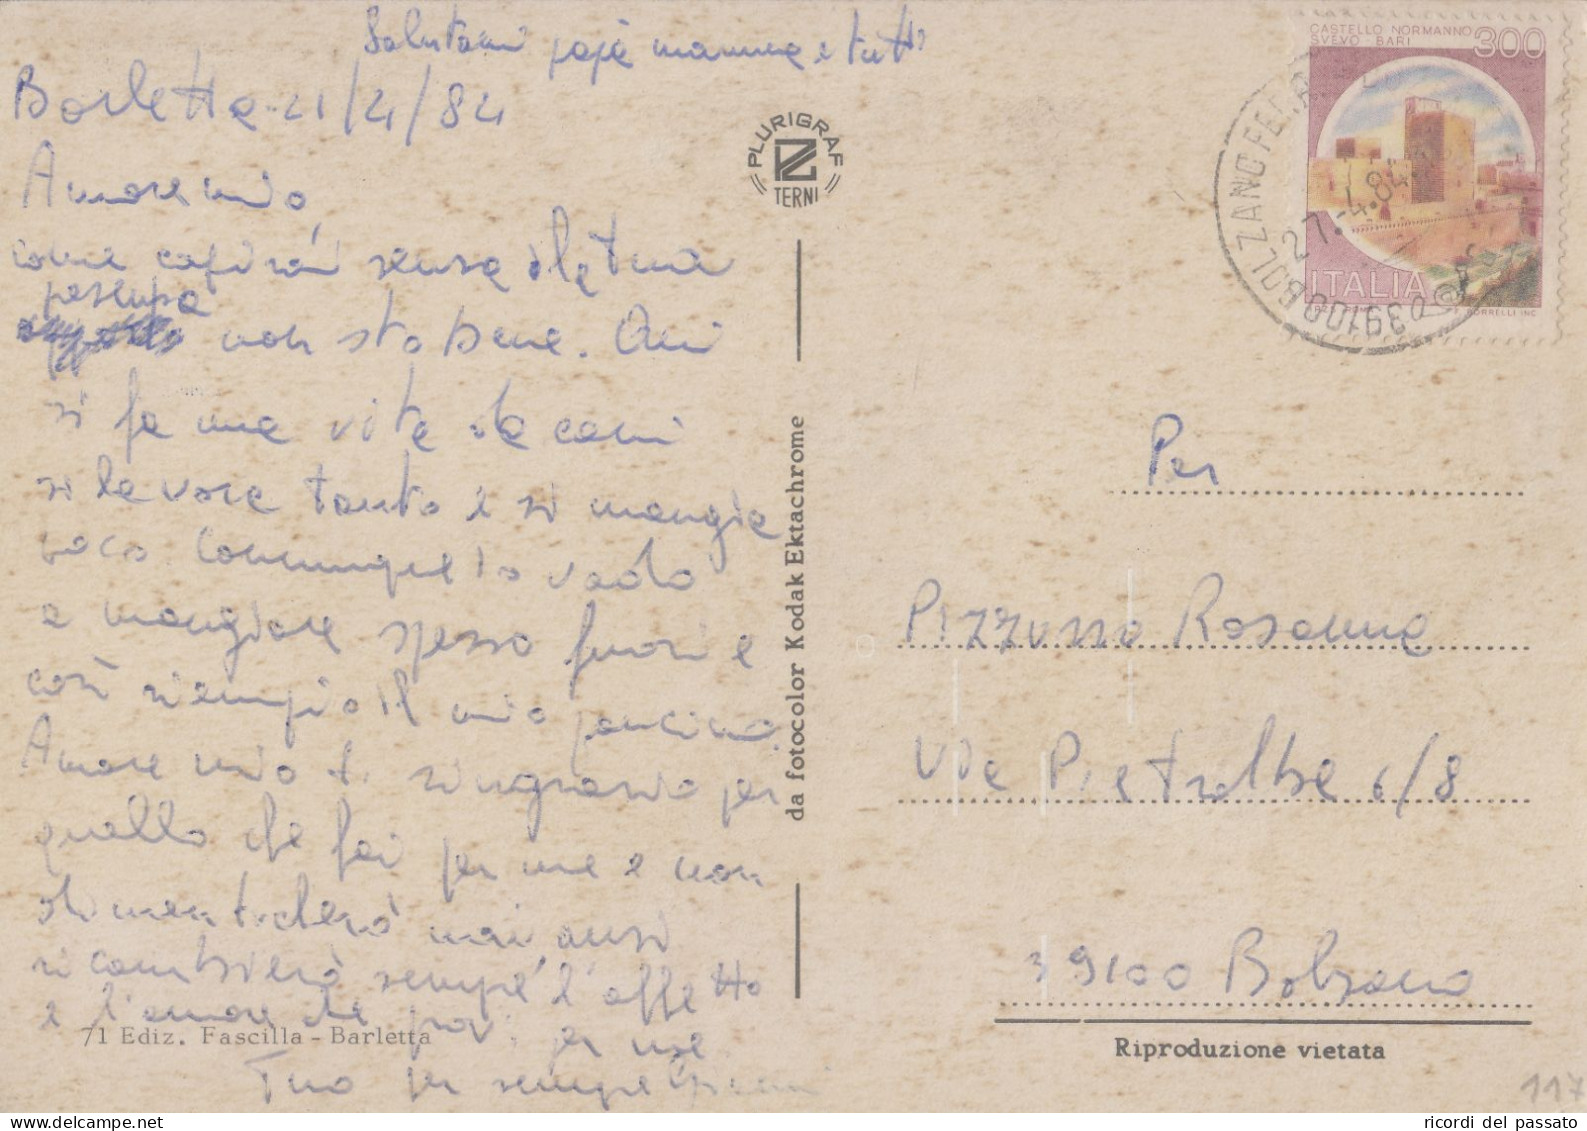 Salutami papà mamma e tutti
Barletta 21/4/84
Amore mio,
come capirai senza di te
pastrupa
non sto bene. Qui
si fa una vita da cani
si lavora tanto e si mangia
poco comunque io vado
a mangiare spesso fuori e
così riempio il mio pancino.
Amore mio ti ringrazio per
quello che fai per me e non
dimenticherò mai, anzi
ricambierò sempre l'affetto
e l'amore che provi per me
Tuo per sempre
71 Ediz. Fascilla - Barletta
PLURIGRAF
TERNI
da fotocolor Kodak Ektachrome
CASTELLO NORMANNO
SVEVO - BARI
300
ITALIA
39100 BOLZANO FER.
27.-4.84
Per
Pizzusso Rosanna
Via Pietralba 6/8
39100 Bolzano
Riproduzione vietata
117
ricordi del passato